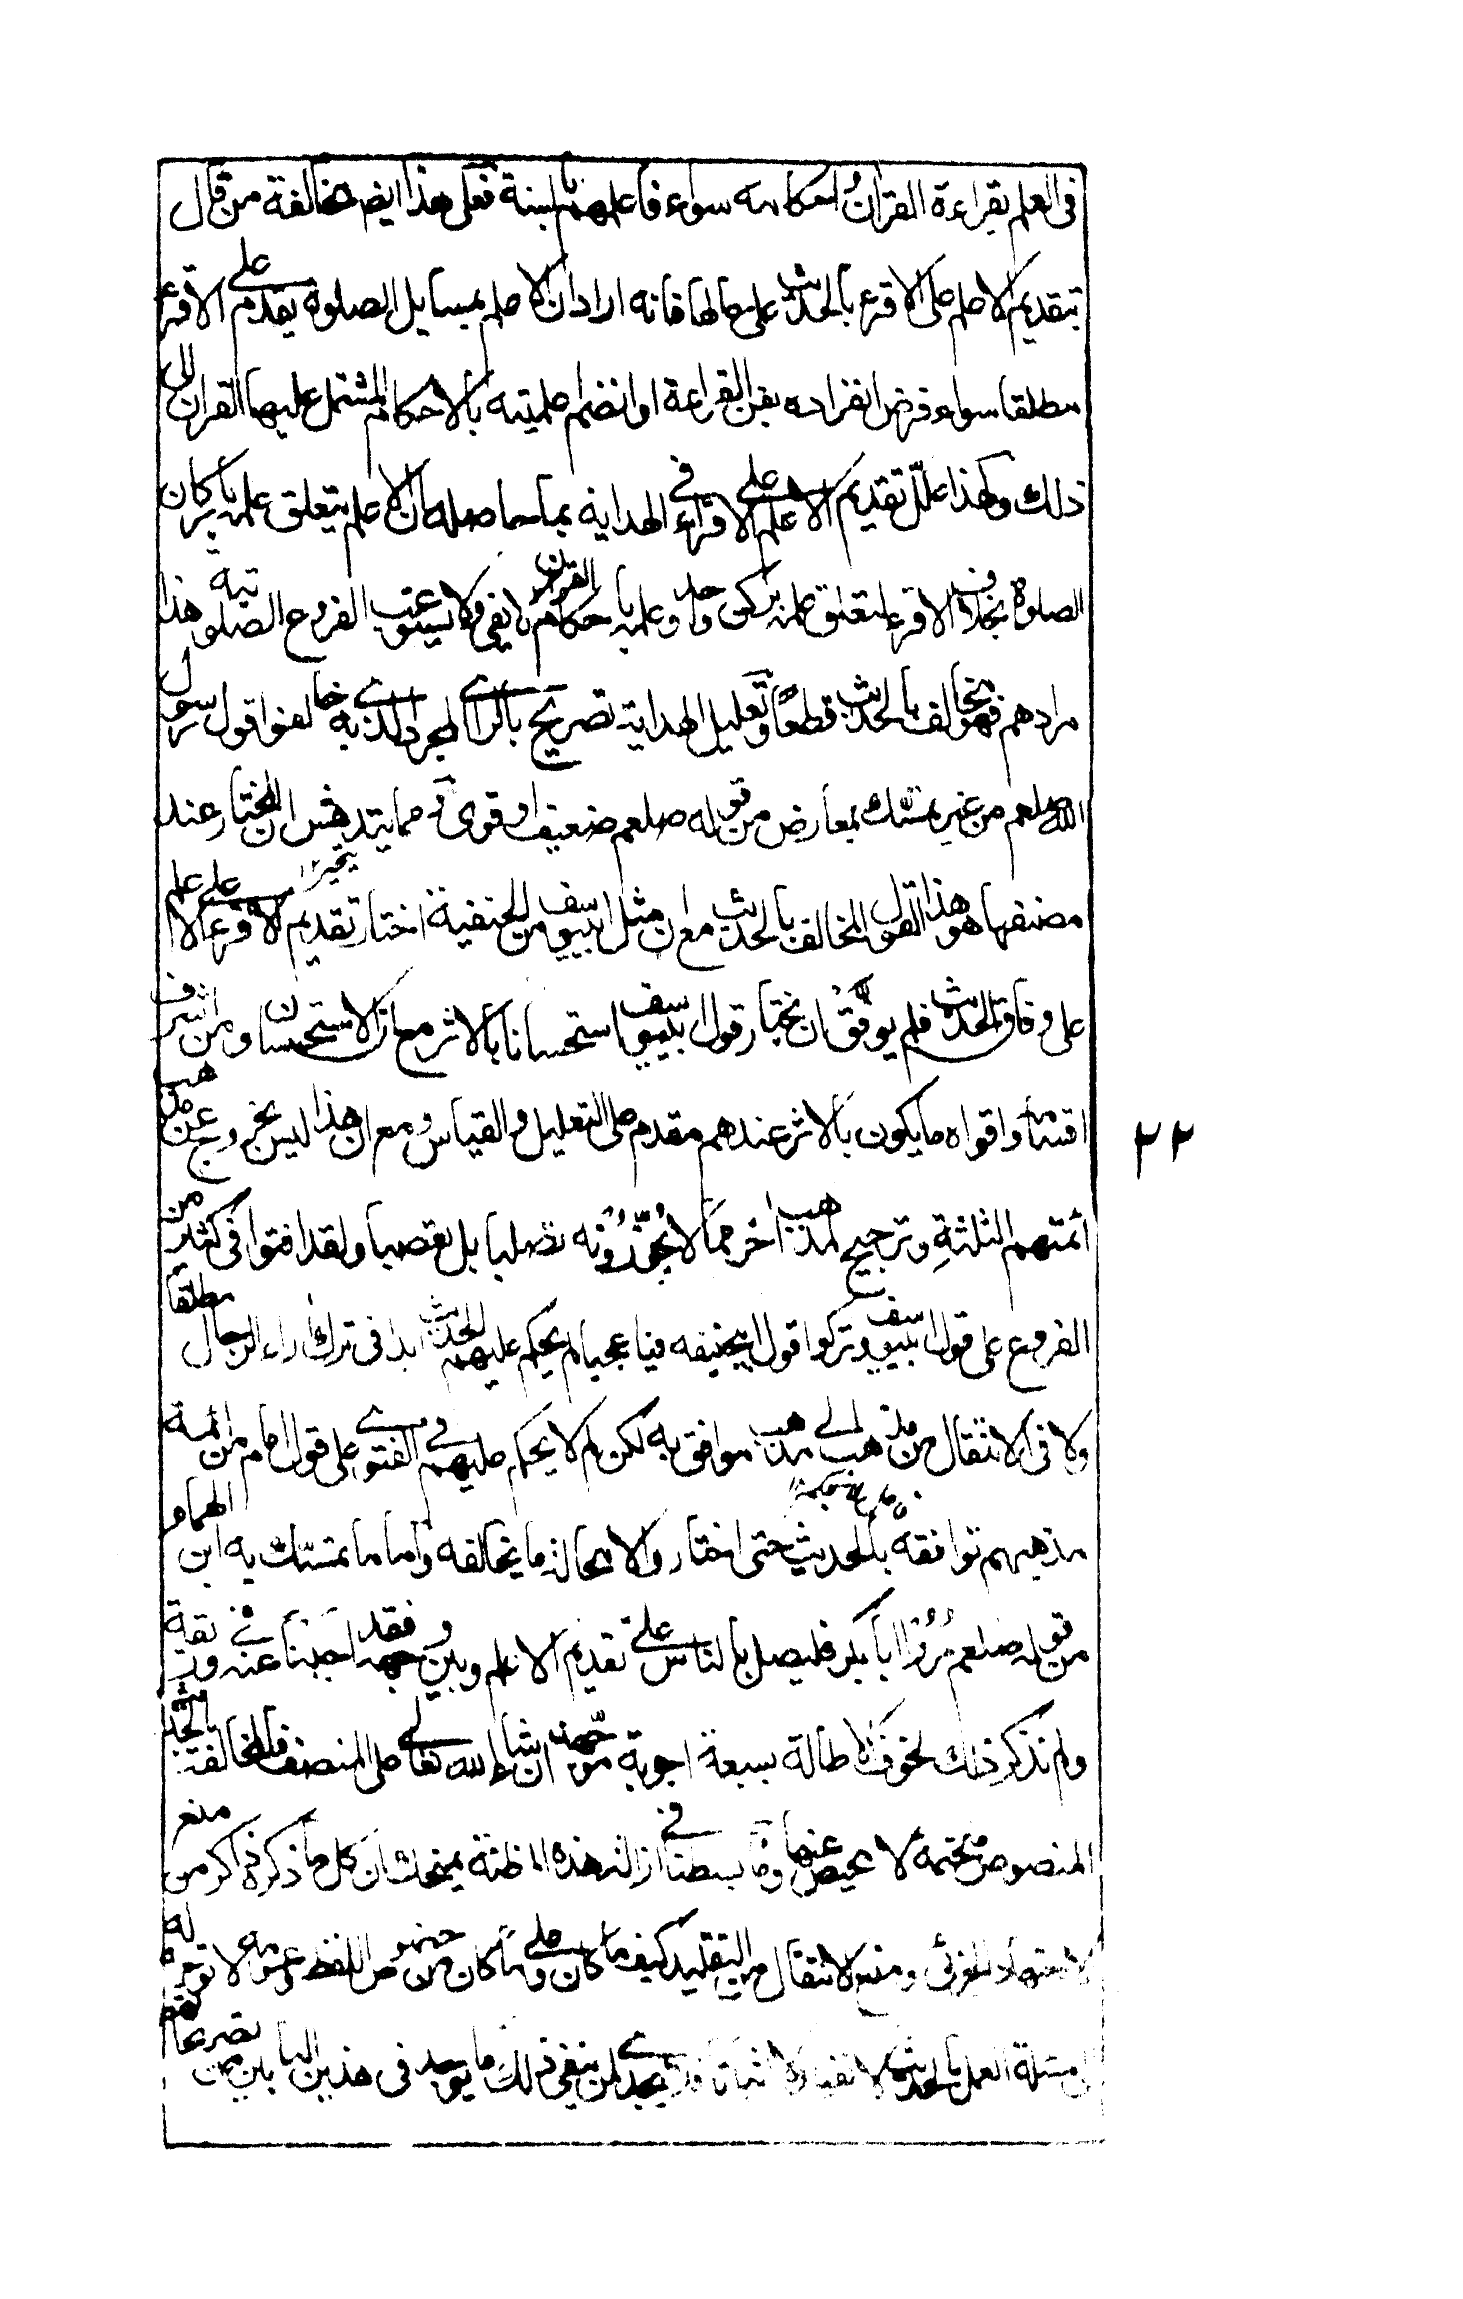 فى العلم بقراءة القرآن واحكامه سواء فاعلمهم بالسنة فعلى هذا ايضا مخالفة من قال
بتقديم الاعلم على الاقرء بالحديث على حالها فانه اراد ان الاعلم بمسايل الصلوة يقدم على الاقرء
مطلقا سواء فرض انفراده بفن القراءة او انضم اعلميته بالاحكام المشتمل عليها القرآن الى
ذلك ولهذا علّل تقديم الاعلم على الاقراء فى الهداية بما حاصله ان الاعلم يتعلق علمه باركان
الصلوة بخلاف الاقرء لتعلق علمه بركن واحد وعلمه باحكام القرآن لا يفى ولا يستوعب الفروع الصلوتية هذا
مرادهم فهو مخالف بالحديث قطعا وتعليل الهداية تصريح بالراى المجرد الذى به خالفوا قول رسول
الله صلعم من غير تمسّك بمعارض من قوله صلعم ضعيف او قوى ومما يتدهش ان المختار عند
مصنفها هو هذا القول المخالف بالحديث مع ان مثل ابى يوسف من الحنفية اختار تقديم الاقرء على الاعلم
على وفاق الحديث فلم يوفّق ان يختار قول ابى يوسف استحسانا بالاثر مع ان الاستحسان ومن اشرف
اقسامه واقواه ما يكون بالاثر عندهم مقدم على التعليل والقياس ومع ان هذا ليس بخروج عن مذهب
ائمتهم الثلثةِ وترجيح لمذهب آخر مما لا يجوّزونه تصلبا بل تعصبا ولقد افتوا فى كثير من
الفروع على قول ابى يوسف وتركوا قول ابى حنيفه فيا عجبا لم يحكم عليهم الحديث ابدا فى ترك آراء الرجال مطلقا
ولا فى الانتقال من مذهب الى مذهب موافق به لكن لم لا يحكم عليهم فى الفتوى على قول امام من ائمة
مذهبهم توافقه بالحديث حتى اختار والا محالة ما يخالفه واما ما تمسّك به ابن الهمام و
من قوله صلعم مُرُوا ابا بكر فليصل بالناس على تقديم الاعلم وبين وجهه فقد اجبنا عنه فى ورقة
ولم نذكر ذلك لخوف الاطالة بسبعة اجوبة موجّهة ان شاء الله تعالى على المنصف فالمخالفة بالحديث
المنصوص مختمة لا محيص عنها وما بسطنا فى ازالة هذه المظنة يمنحك ان كل ما ذكره ذاكر من منع
الاجتهاد الجزئى ومنع الانتقال من التقليد كيف ما كان وعلى ما كان من خصوص اللفظ وعمومه لا تعرض له
فى مسئلة العمل بالحديث لا نفيا ولا اثباتا ولا يجدى لمن ينفى ذلك ما يوجد فى هذين البابين من تصريحاتهم
٢٢